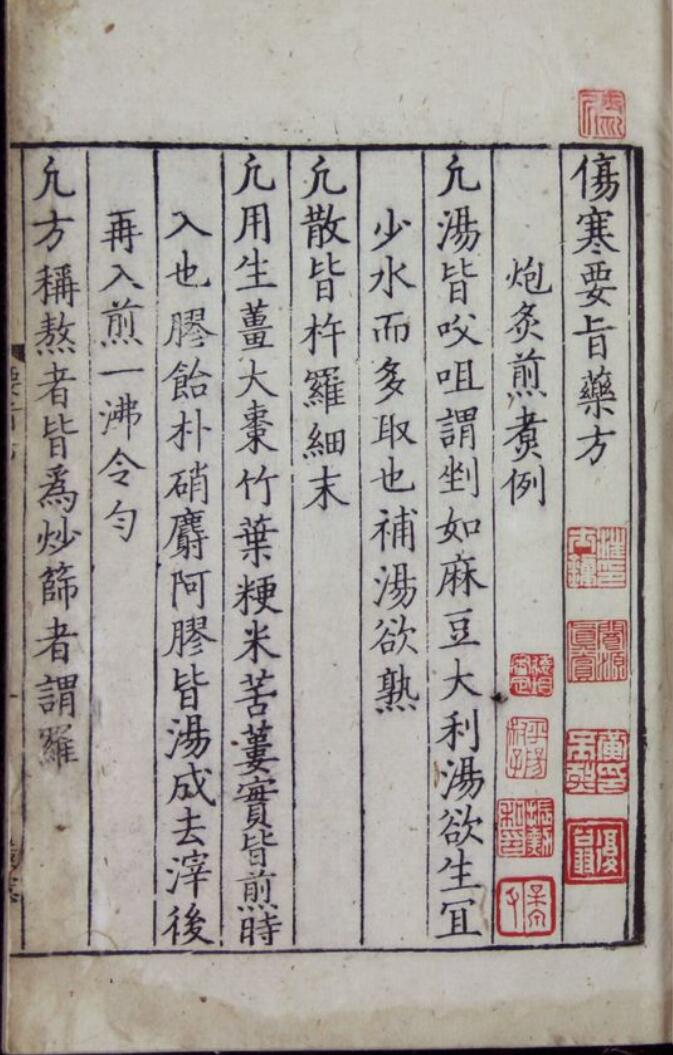 傷寒要旨藥方
炮炙煎煑例
凢湯皆㕮咀謂剉如麻豆大利湯欲生冝
少水而多取也補湯欲熟
凢散皆杵羅細末
凢用生薑大棗竹葉粳米苦蔞實皆煎時
入也膠飴朴硝麝阿膠皆湯成去滓後
再入煎一沸令勻
凢方稱熬者皆爲炒篩者謂羅